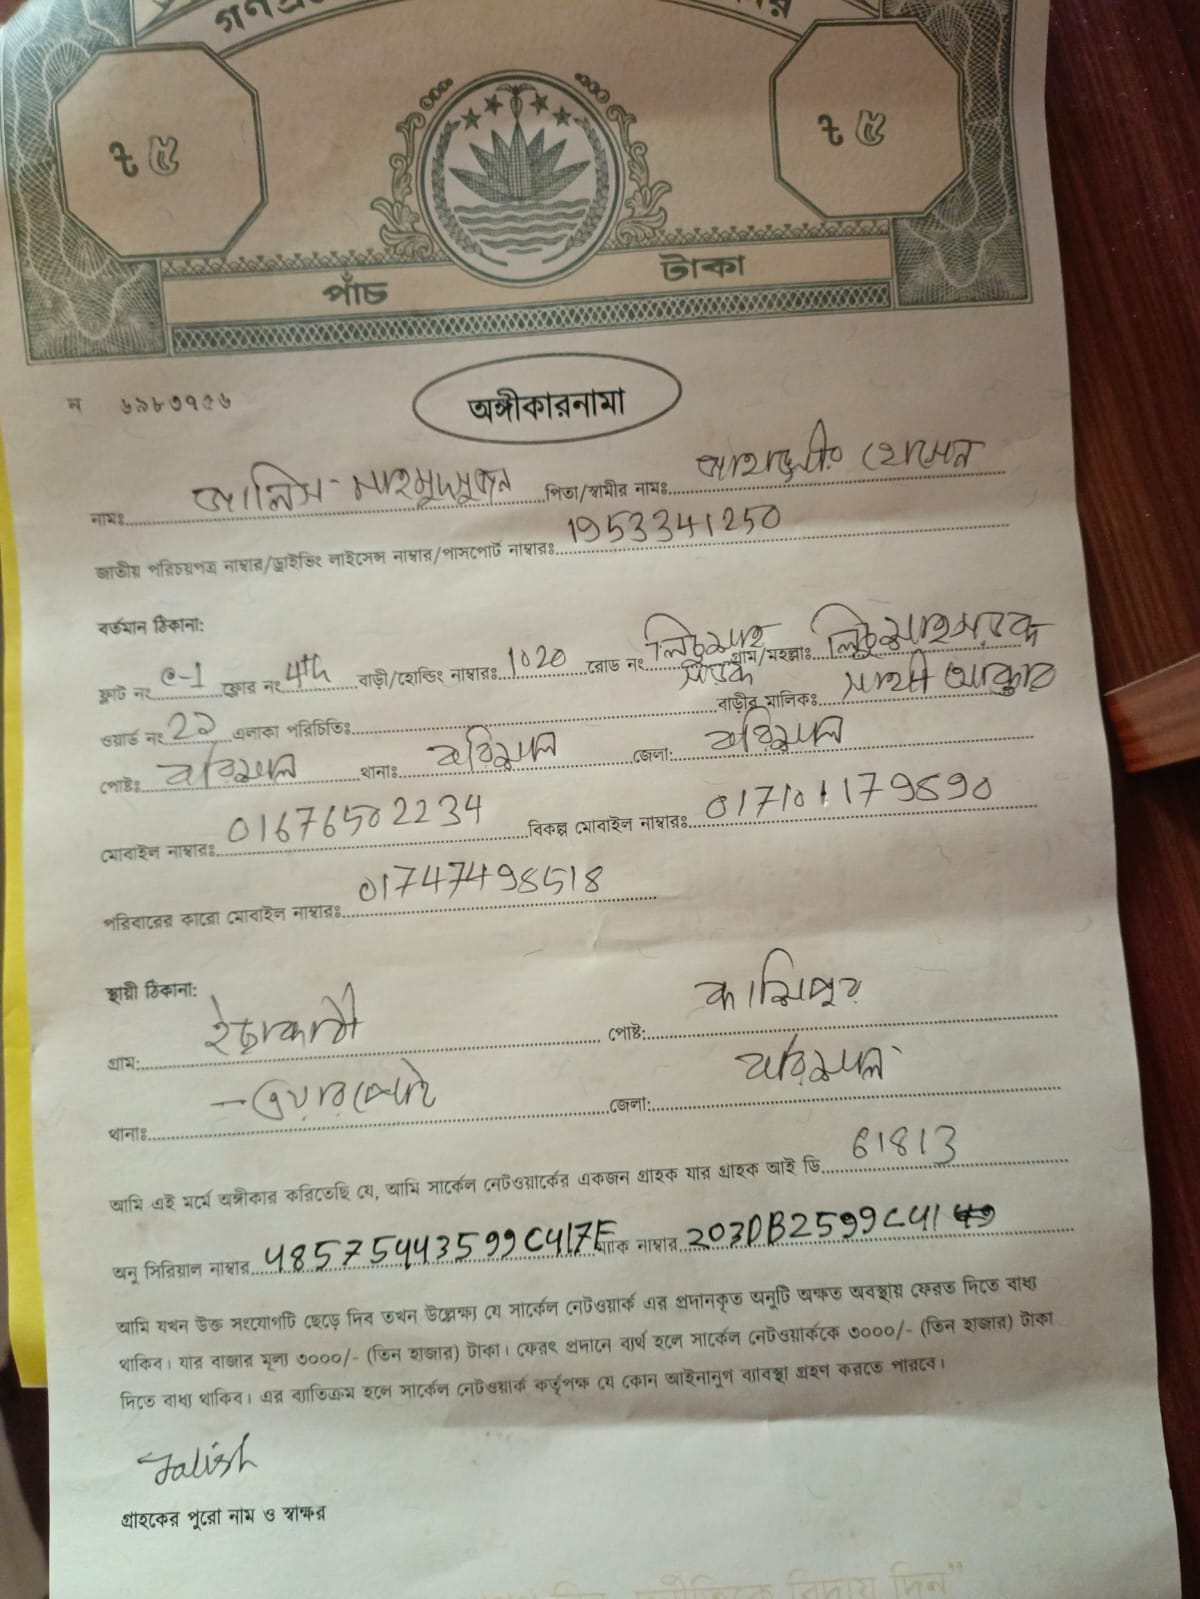 ৳ ৫
৳ ৫
পাঁচ টাকা
ন ৬৯৮৩৭৫৬
অঙ্গীকারনামা
নামঃ জালিস মাহমুদ পিতা/স্বামীর নামঃ জাহাঙ্গীর হোসেন
জাতীয় পরিচয়পত্র নাম্বার/ড্রাইভিং লাইসেন্স নাম্বার/পাসপোর্ট নাম্বারঃ 1953341250
বর্তমান ঠিকানা:
ফ্লাট নং C-1 ফ্লোর নং 4th বাড়ী/হোল্ডিং নাম্বারঃ 1020 রোড নং লিচুশাহ সড়ক গ্রাম/মহল্লাঃ লিচুশাহ সড়ক
ওয়ার্ড নং 22 এলাকা পরিচিতিঃ বাড়ীর মালিকঃ সাথী আক্তার
পোষ্টঃ বরিশাল থানাঃ বরিশাল জেলা: বরিশাল
মোবাইল নাম্বারঃ 01676502234 বিকল্প মোবাইল নাম্বারঃ
পরিবারের কারো মোবাইল নাম্বারঃ 01747498518
স্থায়ী ঠিকানা:
গ্রাম: পোষ্ট: কাশিপুর
থানাঃ জেলা: বরিশাল
আমি এই মর্মে অঙ্গীকার করিতেছি যে, আমি সার্কেল নেটওয়ার্কের একজন গ্রাহক যার গ্রাহক আই ডি 61813
অনু সিরিয়াল নাম্বার 485754443599C417F ম্যাক নাম্বার 203DB2599C41
আমি যখন উক্ত সংযোগটি ছেড়ে দিব তখন উল্লেক্ষ্য যে সার্কেল নেটওয়ার্ক এর প্রদানকৃত অনুটি অক্ষত অবস্থায় ফেরত দিতে বাধ্য
থাকিব। যার বাজার মূল্য ৩০০০/- (তিন হাজার) টাকা। ফেরৎ প্রদানে ব্যর্থ হলে সার্কেল নেটওয়ার্ককে ৩০০০/- (তিন হাজার) টাকা
দিতে বাধ্য থাকিব। এর ব্যাতিক্রম হলে সার্কেল নেটওয়ার্ক কর্তৃপক্ষ যে কোন আইনানুগ ব্যাবস্থা গ্রহণ করতে পারবে।
Jalish
গ্রাহকের পুরো নাম ও স্বাক্ষর